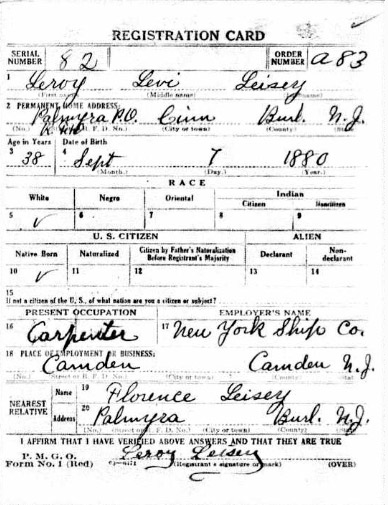 REGISTRATION CARD
SERIAL NUMBER 82 ORDER NUMBER A83
1 Leroy Levi Leisey
(First name) (Middle name) (Last name)
2 PERMANENT HOME ADDRESS:
Palmyra P.O. Cinn Burl. N.J.
(No.) (Street or R. F. D. No.) (City or town) (County) (State)
Age in Years Date of Birth
3 38 4 Sept 7 1880
(Month.) (Day.) (Year.)
RACE
White Negro Oriental Indian
Citizen Noncitizen
5 ✓ 6 7 8 9
U. S. CITIZEN ALIEN
Native Born Naturalized Citizen by Father's Naturalization Before Registrant's Majority Declarant Non-declarant
10 ✓ 11 12 13 14
15
If not a citizen of the U. S., of what nation are you a citizen or subject?
PRESENT OCCUPATION EMPLOYER'S NAME
16 Carpenter 17 New York Ship Co.
18 PLACE OF EMPLOYMENT OR BUSINESS:
Camden Camden N.J.
(No.) (Street or R. F. D. No.) (City or town) (County) (State)
NEAREST RELATIVE
Name 19 Florence Leisey
Address 20 Palmyra Burl. N.J.
(No.) (Street or R. F. D. No.) (City or town) (County) (State)
I AFFIRM THAT I HAVE VERIFIED ABOVE ANSWERS AND THAT THEY ARE TRUE
P. M. G. O.
Form No. 1 (Red) Leroy Leisey
(Registrant's signature or mark) (OVER)